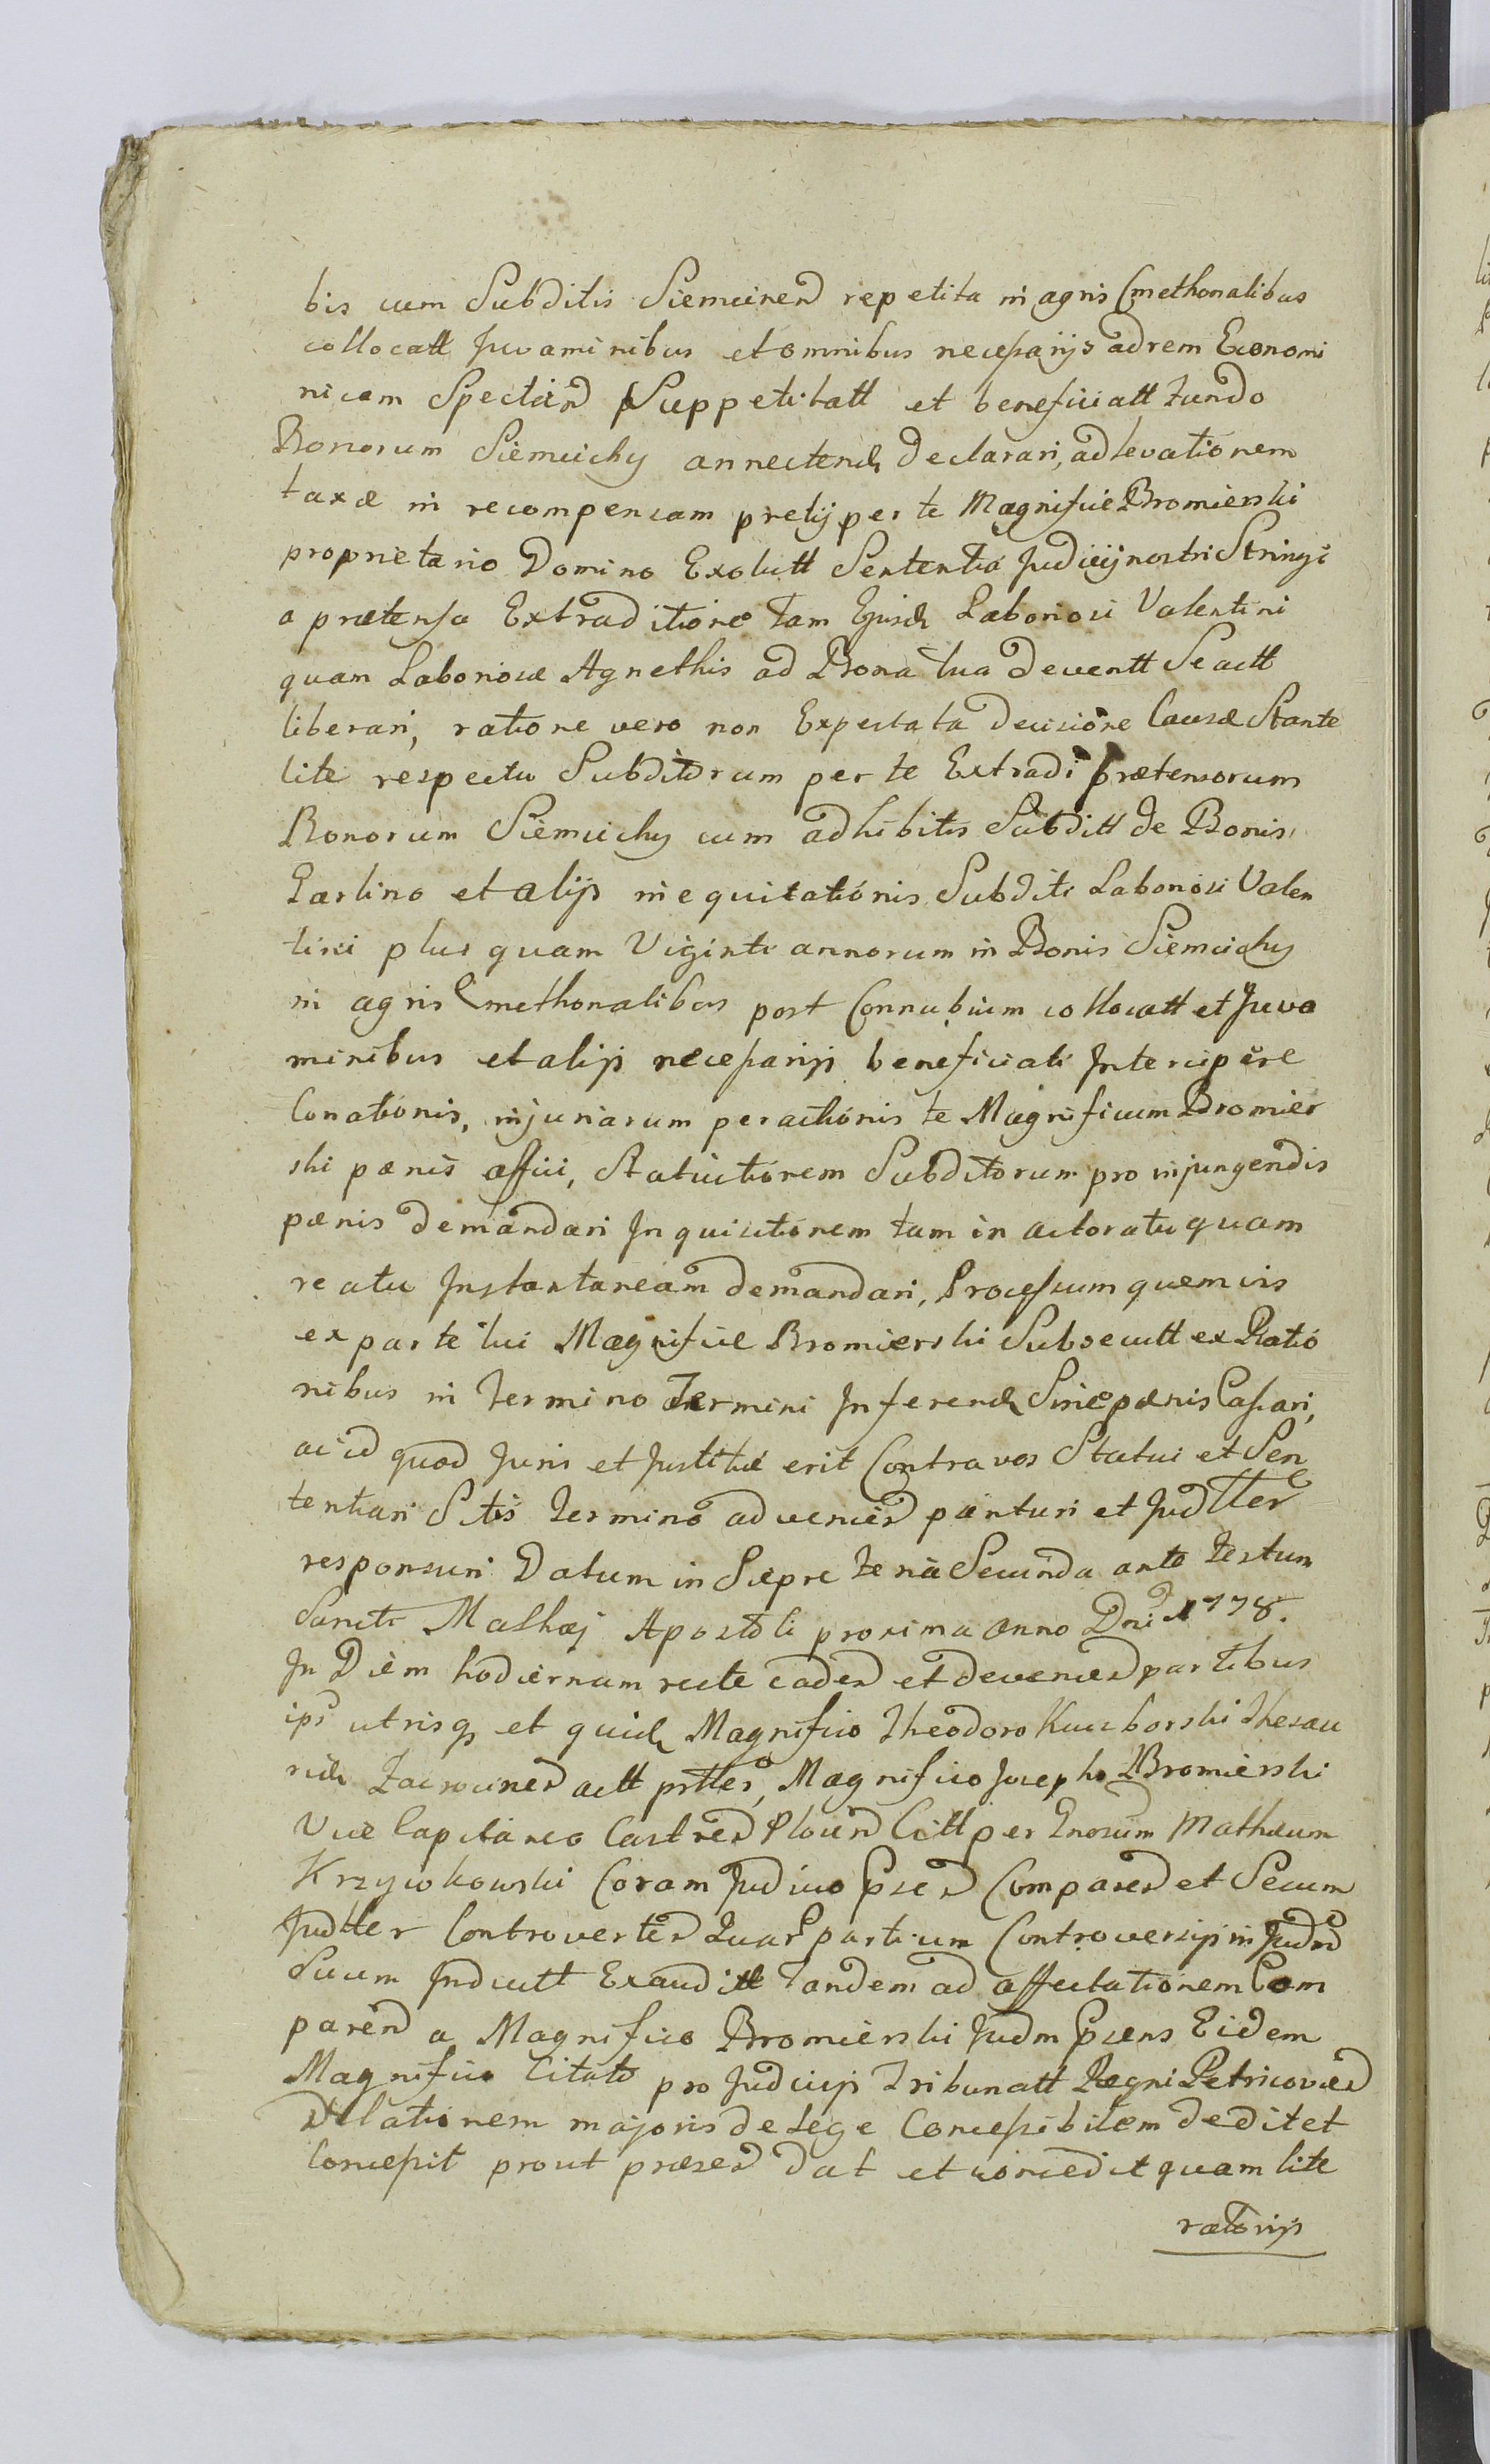 bis cum Subditis Siemcinen repetita in agris Cmethonalibus
collocatt Juvaminibus et omnibus necessarijs ad rem Economi
nicam Spectan Suppeditatt et beneficiatt fundo
Bonorum Siemcichy annectend declarari, ad levationem
taxæ in recompensam pretij per te Magnifice Bromierski
proprietario Domino Exolutt Sententia Judicij nostri Stringi
a prætensa Extraditione tam Ejusd Laboriosi Valentini
quam Laboriosæ Agnethis ad Bona tua deventt Se actt
liberari, ratione vero non Expectata decisione Causæ Stante
lite respectu Subditorum per te Extradi prætensorum
Bonorum Siemcichy cum adhibitis Subditt de Bonis
Parlino et alijs inequitationis Subditi Laboriosi Valen
tini plus quam Viginti annorum in Bonis Siemcichy
in agris Cmethonalibus post Connubium collocatt et Juva
minibus et alijs necessarijs beneficiati Intercipere
Conationis, injuriarum peractionis te Magnificum Bromier
ski pænis affici, Statuitionem Subditorum pro injungendis
pænis demandari Inquisitionem tam in actoratu quam
reatu Instantaneam demandari, Processum quemvis
ex parte tui Magnifice Bromierski Subsecutt ex Ratio
nibus in Termino Termini Inferend Sine pænis Cassari,
ac id quod Juris et Justitiæ erit Contra vos Statui et Sen
tentiari Sitis Termino advenien parituri et Judtter
responsuri Datum in Siepre feria Secunda ante festum
Sancti Mathæi Apostoli proxima Anno Dni 1778.
In Diem hodiernam recte caden et devenien partibus
ips utrisq et quid Magnifico Theodoro Kuczborski Thesau
rid Zacrocinen actt prtter, Magnifico Josepho Bromierski
Vice Capitaneo Castren Plocen Citt per Gnosum Mathæum
Krzywkowski Coram Judicio Psen Comparen et Secum
Judtter Controverten Quar partium Controversijs in Judm
Suum Inductt Exauditt Tandem ad affectationem Com
paren a Magnifico Bromierski Judm Psens Eidem
Magnifico Citato pro Judicijs Tribunatt Regni Petricovien
dilationem majoris de lege Concessibilem dedit et
Concessit prout præsen dat et concedit quam lite
ratorijs